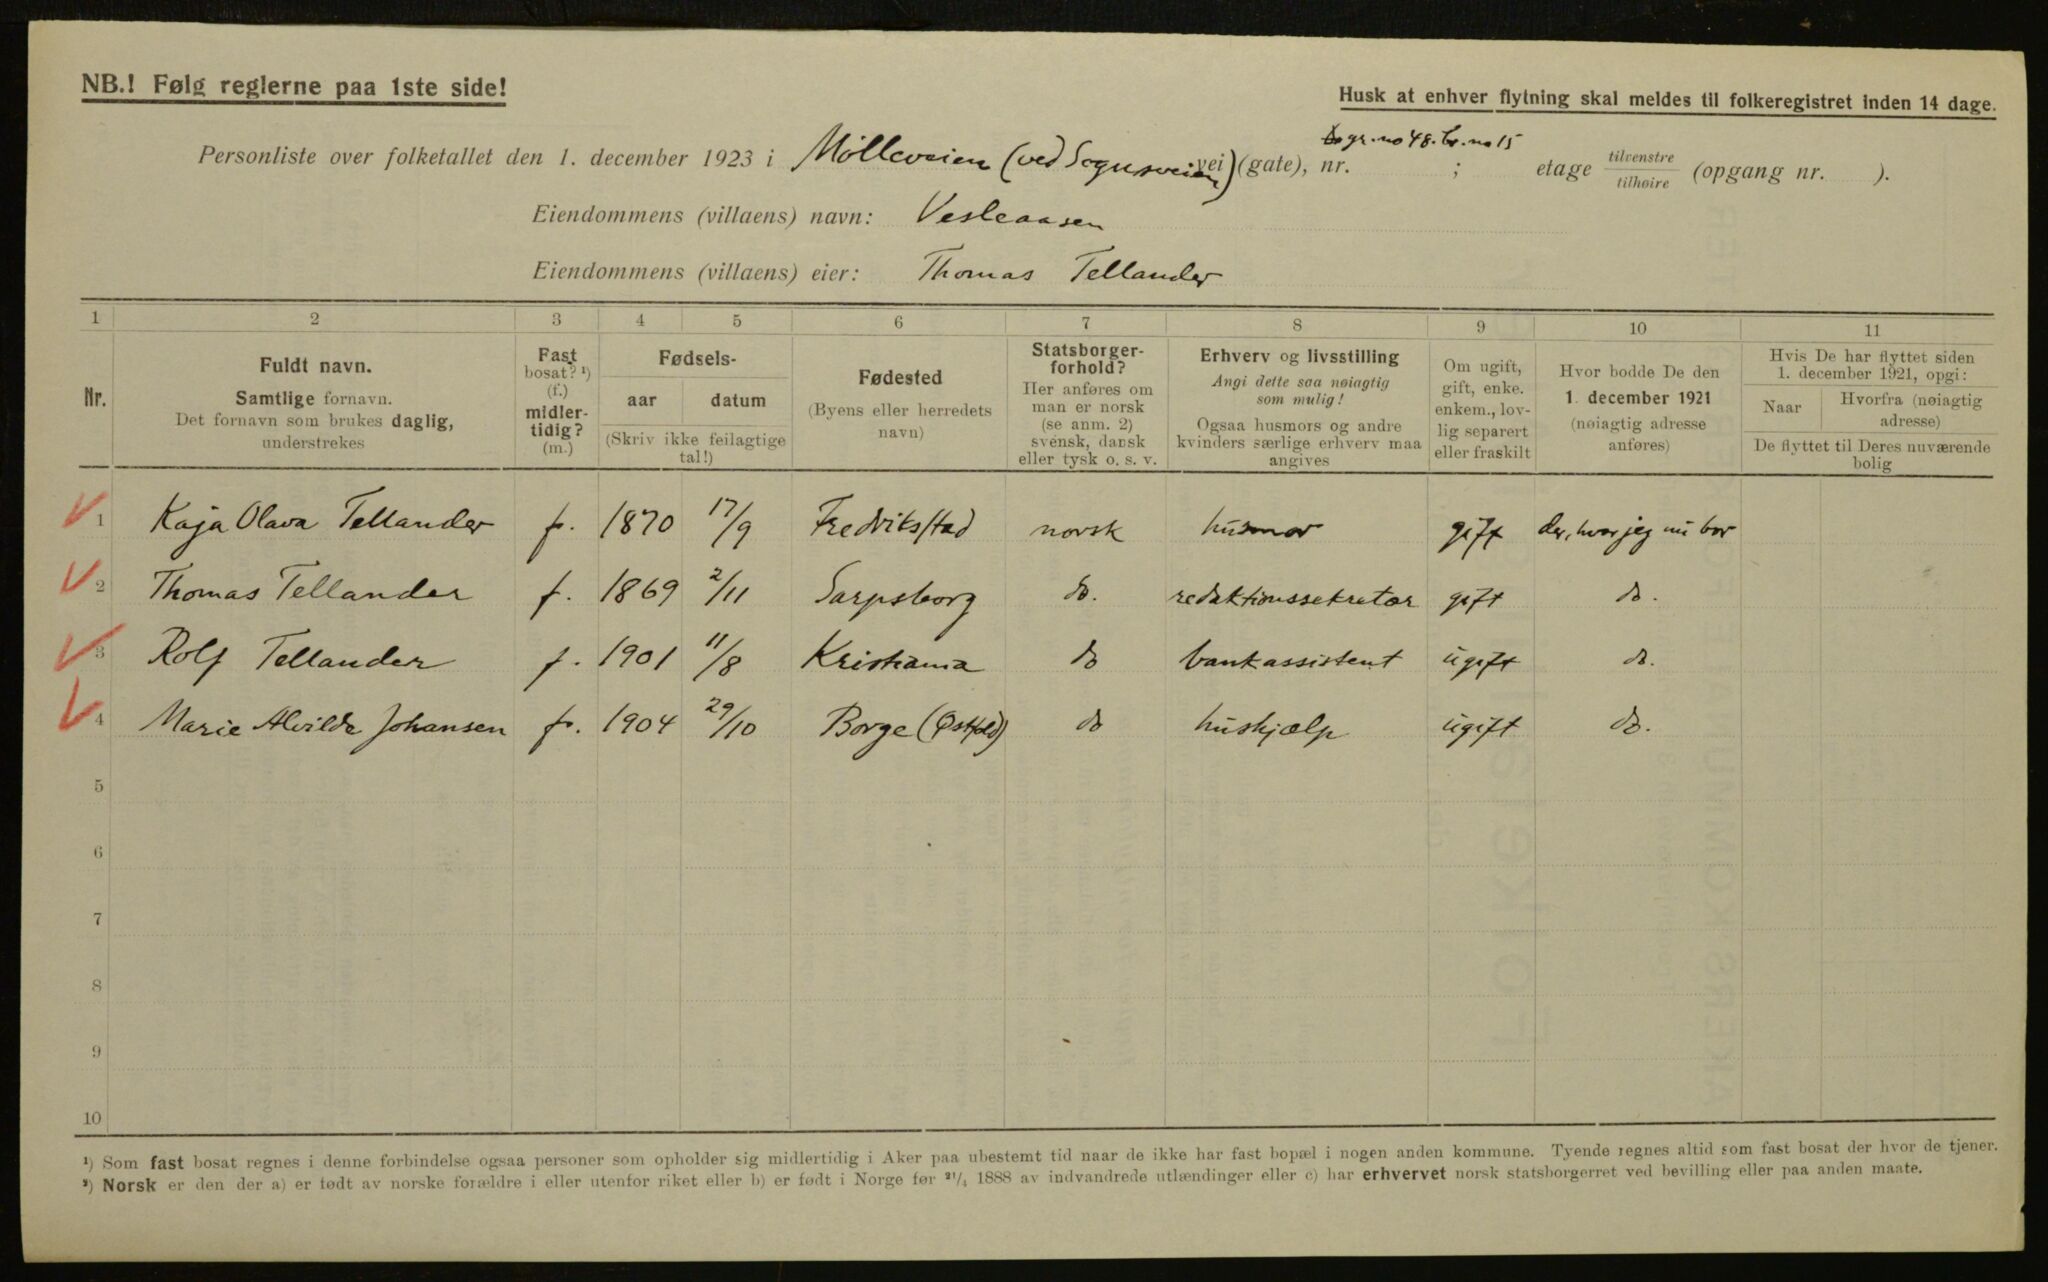 NB.! Følg reglerne paa 1ste side!
Husk at enhver flytning skal meldes til folkeregistret inden 14 dage.
gr. no 48. br. no 15
Personliste over folketallet den 1. december 1923 i Mølleveien (ved Sognsveien) vei (gate), nr. ; etage tilvenstre / tilhøire (opgang nr. ).
Eiendommens (villaens) navn: Vesleaasen
Eiendommens (villaens) eier: Thomas Tellander
1 2 3 4 5 6 7 8 9 10 11
Nr.
Fuldt navn.
Samtlige fornavn.
Det fornavn som brukes daglig,
understrekes
Fast
bosat? ¹)
(f.)
midler-
tidig?
(m.)
Fødsels-
aar datum
(Skriv ikke feilagtige
tal!)
Fødested
(Byens eller herredets
navn)
Statsborger-
forhold?
Her anføres om
man er norsk
(se anm. 2)
svensk, dansk
eller tysk o. s. v.
Erhverv og livsstilling
Angi dette saa nøiagtig
som mulig!
Ogsaa husmors og andre
kvinders særlige erhverv maa
angives
Om ugift,
gift, enke.
enkem., lov-
lig separert
eller fraskilt
Hvor bodde De den
1. december 1921
(nøiagtig adresse
anføres)
Hvis De har flyttet siden
1. december 1921, opgi:
Naar
Hvorfra (nøiagtig
adresse)
De flyttet til Deres nuværende
bolig
1 Kaja Olava Tellander f. 1870 17/9 Fredrikstad norsk husmor gift der, hvor jeg nu bor
2 Thomas Tellander f. 1869 2/11 Sarpsborg do. redaktionssekretær gift do.
3 Rolf Tellander f. 1901 11/8 Kristiania do bankassistent ugift do.
4 Marie Alvilde Johansen f. 1904 29/10 Borge (Østfold) do hushjælp ugift do.
5
6
7
8
9
10
¹) Som fast bosat regnes i denne forbindelse ogsaa personer som opholder sig midlertidig i Aker paa ubestemt tid naar de ikke har fast bopæl i nogen anden kommune. Tyende regnes altid som fast bosat der hvor de tjener.
²) Norsk er den der a) er født av norske forældre i eller utenfor riket eller b) er født i Norge før 21/4 1888 av indvandrede utlændinger eller c) har erhvervet norsk statsborgerret ved bevilling eller paa anden maate.